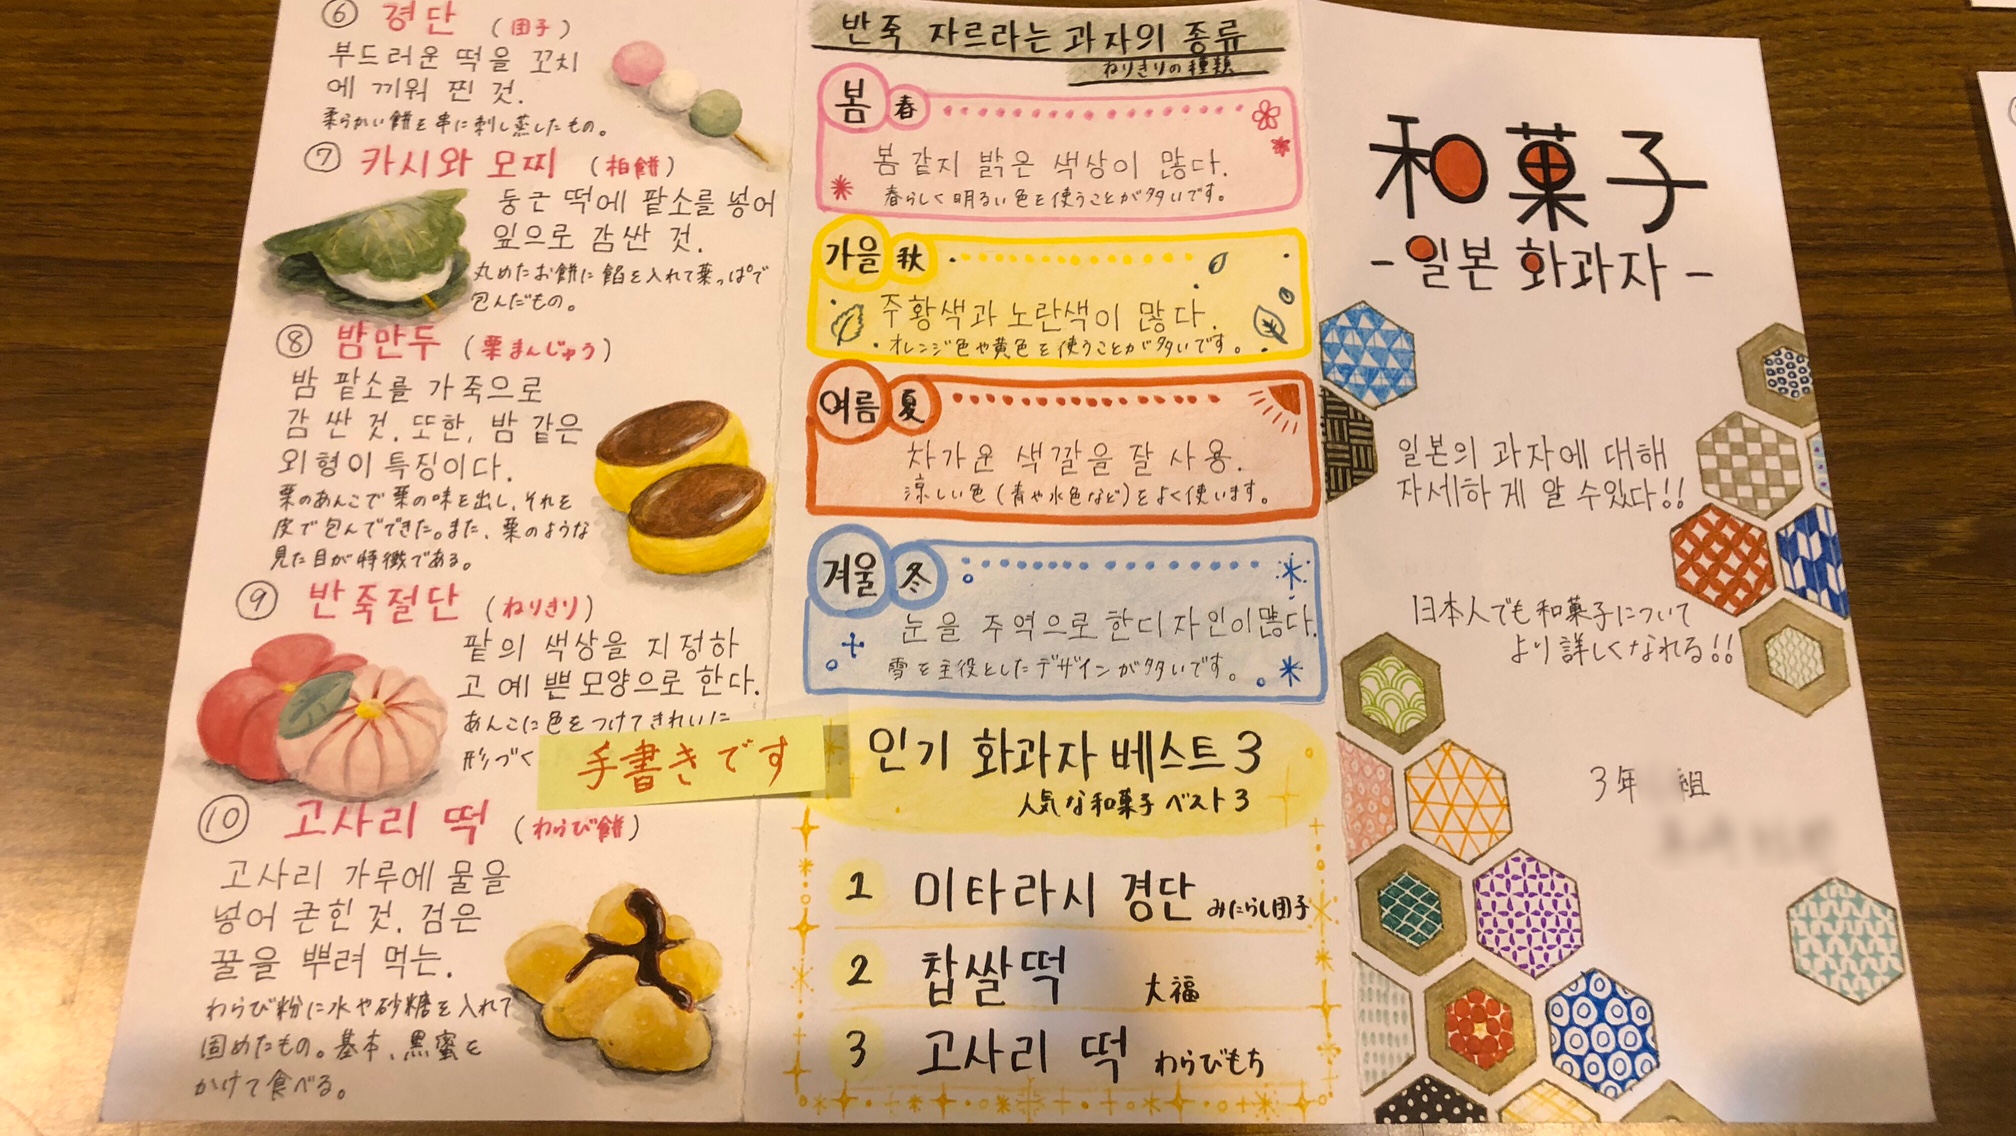 ⑥ 경단 (団子)
부드러운 떡을 꼬치
에 끼워 찐 것.
柔らかい餅を串に刺し蒸したもの。
⑦ 카시와 모찌 (柏餅)
둥근 떡에 팥소를 넣어
잎으로 감싼 것.
丸めたお餅に餡を入れて葉っぱで
包んだもの。
⑧ 밤만두 (栗まんじゅう)
밤 팥소를 가죽으로
감싼 것. 또한, 밤 같은
외형이 특징이다.
栗のあんこで栗の味を出し、それを
皮で包んでできた。また、栗のような
見た目が特徴である。
⑨ 반죽절단 (ねりきり)
팥의 색상을 지정하
고 예쁜 모양으로 한다.
あんこに色をつけてきれいに
形づく
手書きです
⑩ 고사리 떡 (わらび餅)
고사리 가루에 물을
넣어 굳힌 것. 검은
꿀을 뿌려 먹는.
わらび粉に水や砂糖を入れて
固めたもの。基本、黒蜜を
かけて食べる。
반죽 자르라는 과자의 종류
ねりきりの種類
봄 春
봄 같지 밝은 색상이 많다.
春らしく明るい色を使うことが多いです。
가을 秋
주황색과 노란색이 많다.
オレンジ色や黄色を使うことが多いです。
여름 夏
차가운 색깔을 잘 사용.
涼しい色(青や水色など)をよく使います。
겨울 冬
눈을 주역으로 한 디자인이 많다.
雪を主役としたデザインが多いです。
인기 화과자 베스트 3
人気な和菓子 ベスト3
1 미타라시 경단 みたらし団子
2 찹쌀떡 大福
3 고사리 떡 わらびもち
和菓子
-일본 화과자-
일본의 과자에 대해
자세하게 알 수있다!!
日本人でも和菓子について
より詳しくなれる!!
3年 組